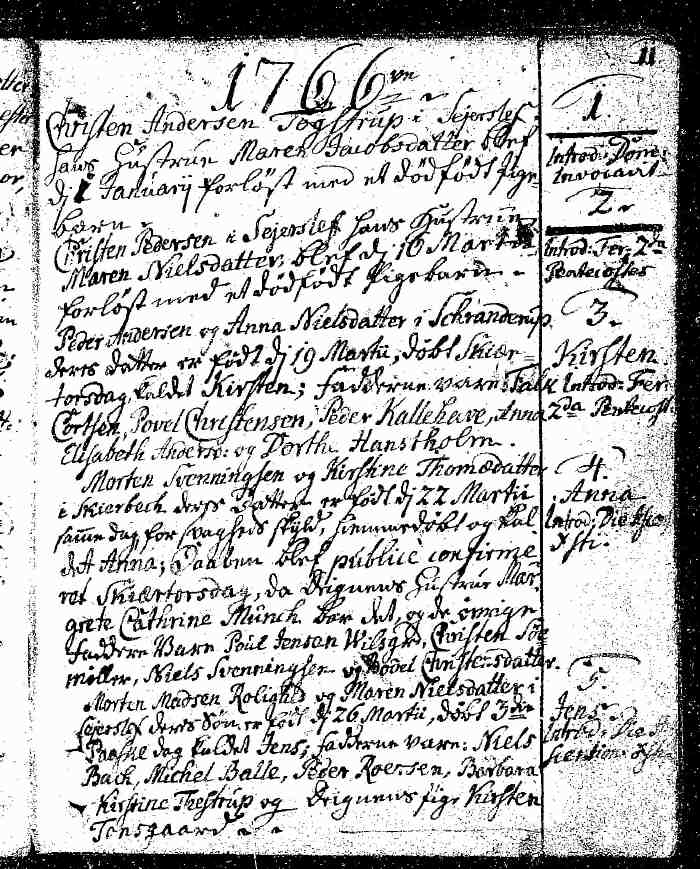 11
1766
Christen Andersen Togstrup i Sejerslef
hans Hustrue Maren Jacobsdatter blef
dj 1 Januarij forløst med et dødfødt Pige-
barn
1.
Introd: Dom:
Invocavit
Christen Pedersen i Sejerslef hans Hustrue
Maren Nielsdatter, blef dj 16 Martii
forløst med et dødfødt Pigebarn
2.
Introd: Fer: 2da
Pentecostes
Peder Andersen og Anna Nielsdatter i Schranderup
deres datter er født dj 19 Martii, døbt Skiær-
torsdag kaldet Kirsten; Fadderne vare: Falk
Cortsen, Povel Christensen, Peder Kallehave, Anna
Elisabeth Anders: og Dorthe Hanstholm.
3.
Kirsten
Introd: Fer:
2da Pentecost:
Morten Svenningsen og Kirstine Thomædatter
i Skierbech deres Datter er født dj 22 Martii
samme dag for svagheds skyld, hiemmedøbt og kal
det Anna; Daaben blef publicè confirme
ret Skiærtorsdag, da Deignens Hustrue Mar-
grete Cathrine Münch bar det, og de øvrige
Faddere Vare Poul Jensen Wilsgrd, Christen Søe
møller, Niels Svenningsen og Bodel Christensdatter.
4.
Anna
Introd: Die
Morten Madsen Rolighed og Maren Nielsdatter i
Sejerslef deres Søn er født dj 26 Martii, døbt 3die
Paaske dag kaldet Jens; Fadderne vare: Niels
Back, Michel Balle, Peder Roessen, Barbara
Kirstine Thestrup og Deignens Pige Kirsten
Tønsgaard
5.
Jens
Introd: Die